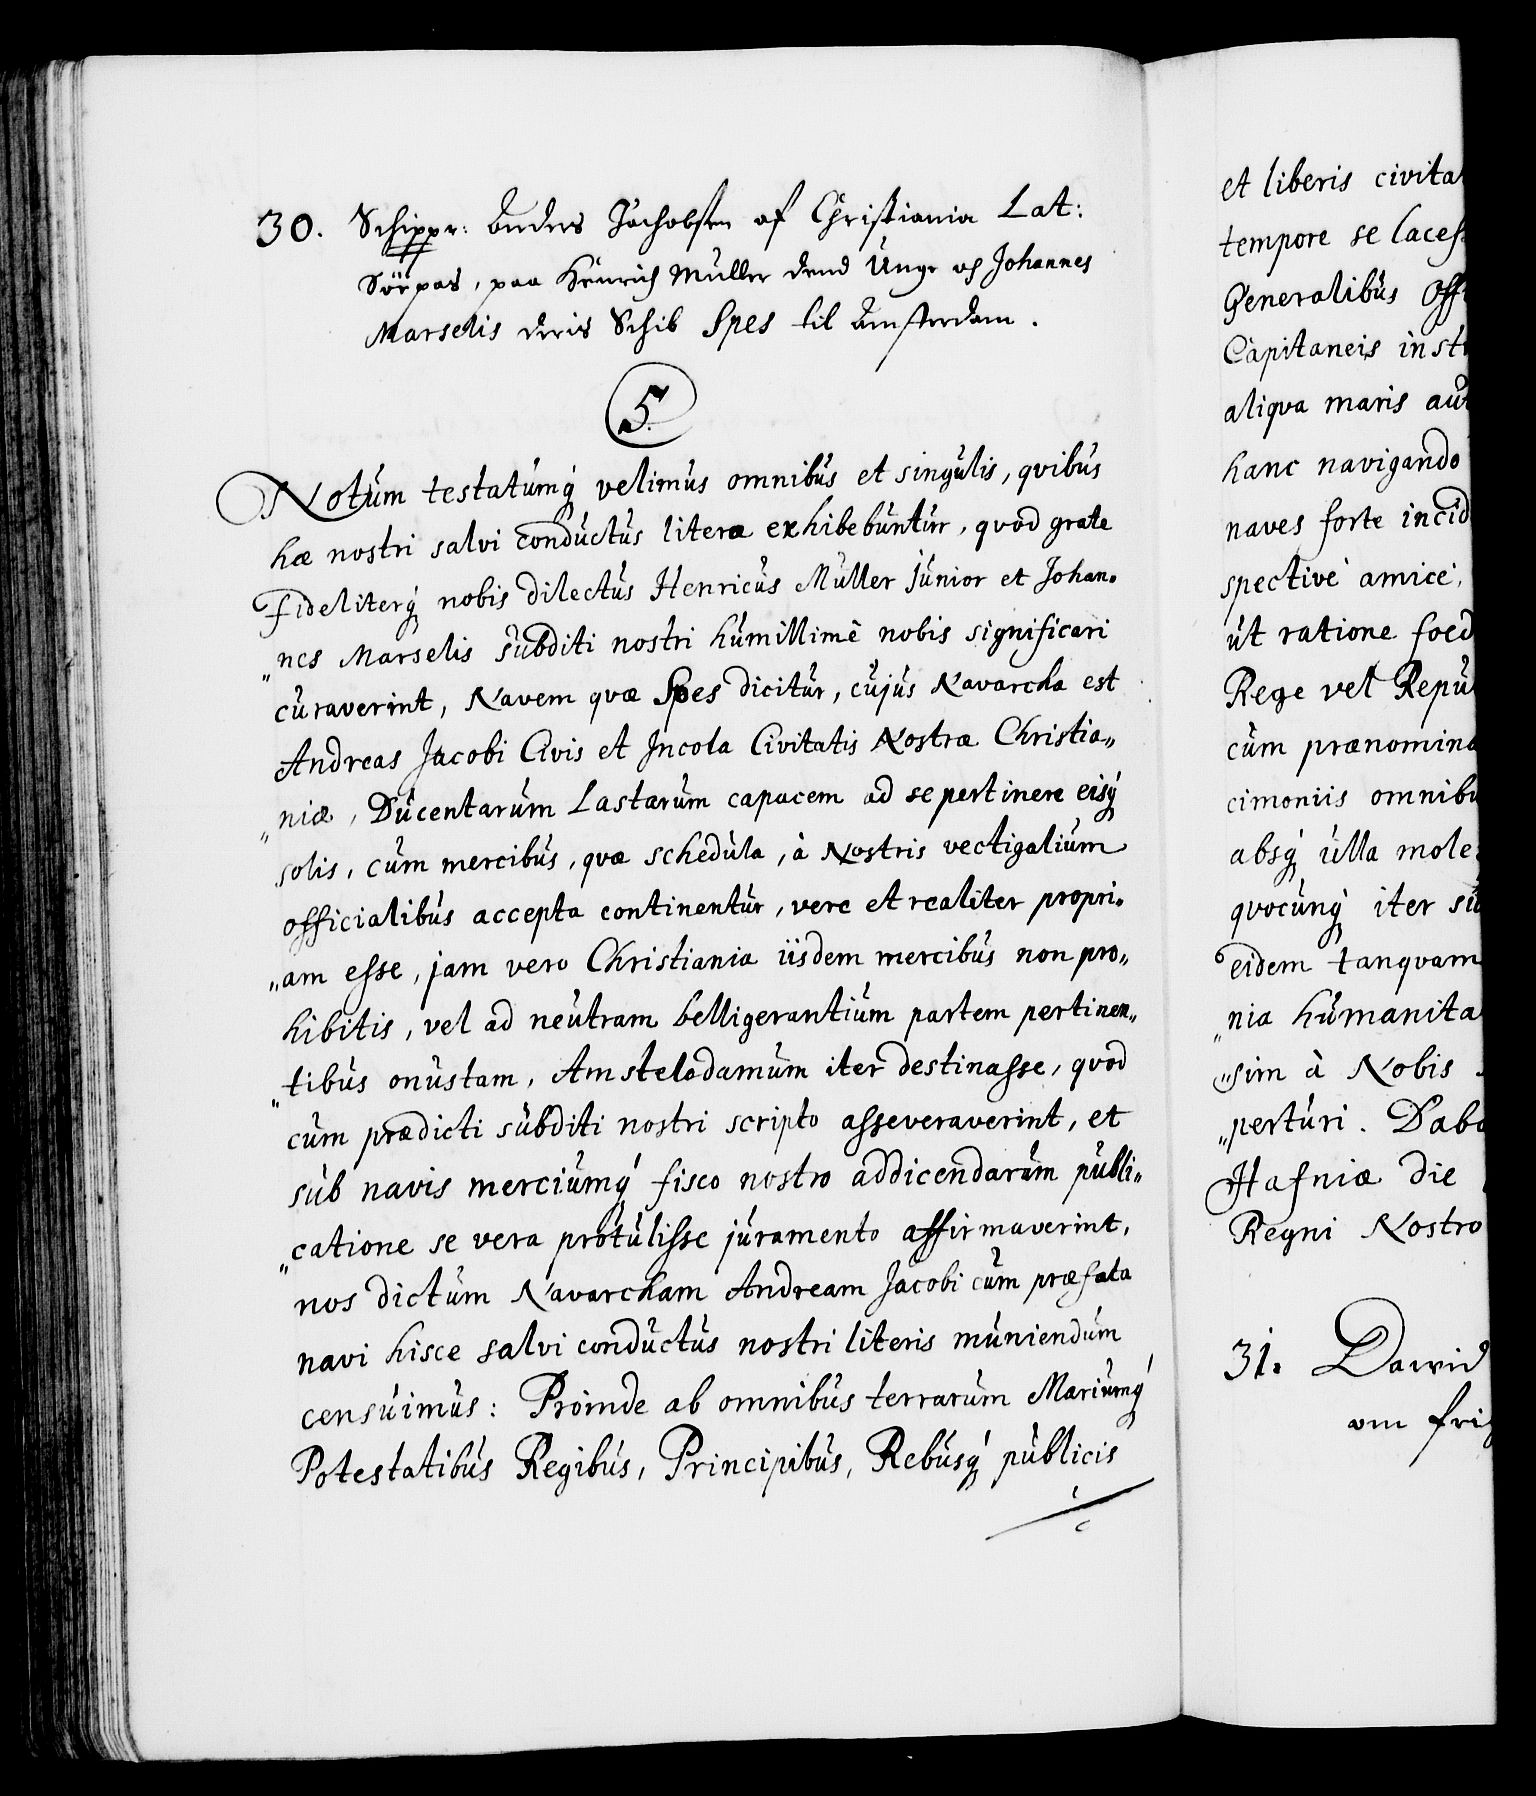 30. Schippr: Anders Jachobsen af Christiania Lat:
Söepas, paa Henrich Müller dend Unge oc Johannes
Marselis deris Schib Spes til Amsterdam.
5.
Notum testatumq́ velimus omnibus et singulis, qvibus
hæ nostri salvi conductus literæ exhibebuntur, qvod grate
Fideliterq́ nobis dilectus Henricus Muller junior et Johan„
„nes Marselis subditi nostri humillimè nobis significari
curaverint, Navem qvæ Spes dicitur, cujus Navarcha est
Andreas Jacobi Civis et Incola Civitatis Nostræ Christia„
„niæ, Ducentarum Lastarum capacem ad se pertinere eisq́
solis, cum mercibus, qvæ schedula, à Nostris vectigalium
officialibus accepta continentur, vere et realiter propri„
„am esse, jam vero Christiania iisdem mercibus non pro„
hibitis, vel ad neutram belligerantium partem pertinen„
„tibus onustam, Amstelodamum iter destinasse, qvod
cum prædicti subditi nostri scripto asseveraverint, et
sub navis merciumq́ fisco nostro addicendarum publi„
„catione se vera protulisse juramento affirmaverint,
nos dictum Navarcham Andream Jacobi cum præfata
navi hisce salvi conductus nostri literis muniendum
censuimus: Proinde ab omnibus terrarum Mariumq́
Potestatibus Regibus, Principibus, Rebusq́ publicis
et liberis civita
tempore se lacess
Generalibus Off
Capitaneis inst
aliqva maris au
hanc navigando
naves forte incid
spectivè amicè,
ut ratione foed
Rege vel Repu
cum prænomina
cimoniis omnibu
absq́ ulla mole
qvocunq́ iter su
eidem tanqvam
„nia humanita
„sim à Nobis
„perturi. Daba
Hafniæ die
Regni Nostro
31. Dawid
om frij